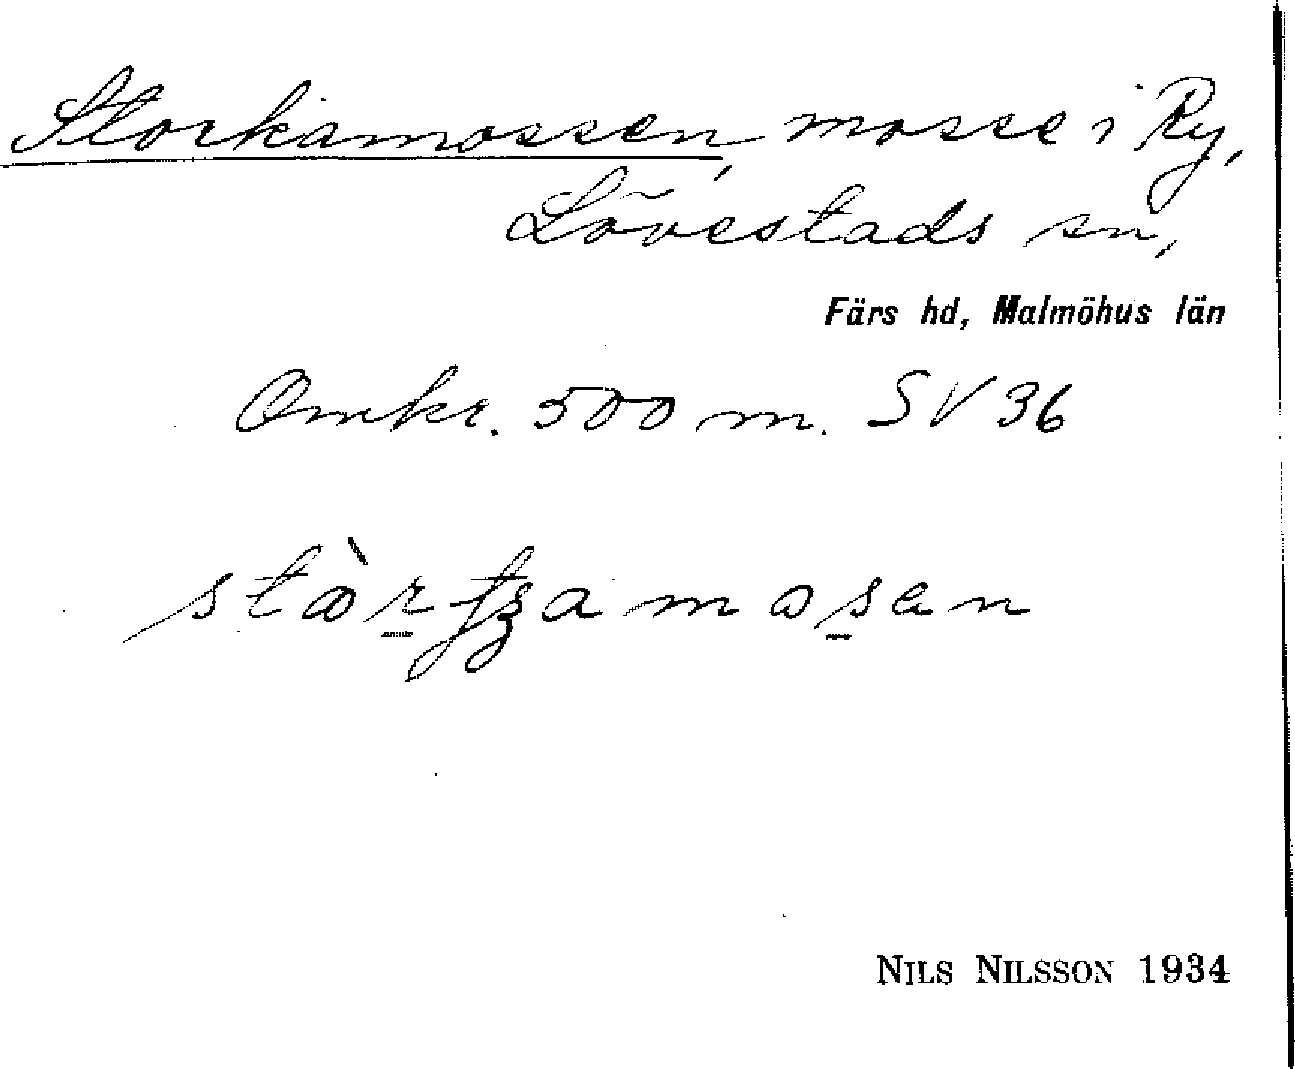 Storkamossen, mosse i Ry,
Lövestads sn,
Färs hd, Malmöhus län
Omkr. 500 m. SV 36
NILS NILSSON 1934